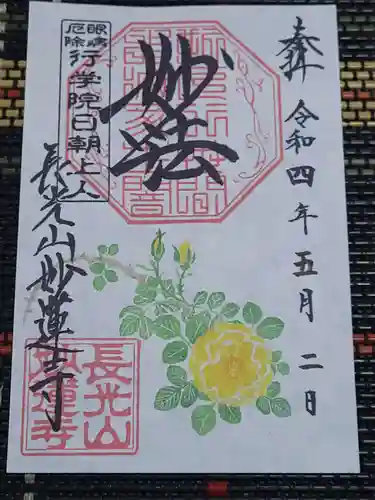 奉拝
令和四年五月二日
妙法
眼病
厄除
行学院日朝上人
長光山妙蓮寺
長光山
妙蓮寺